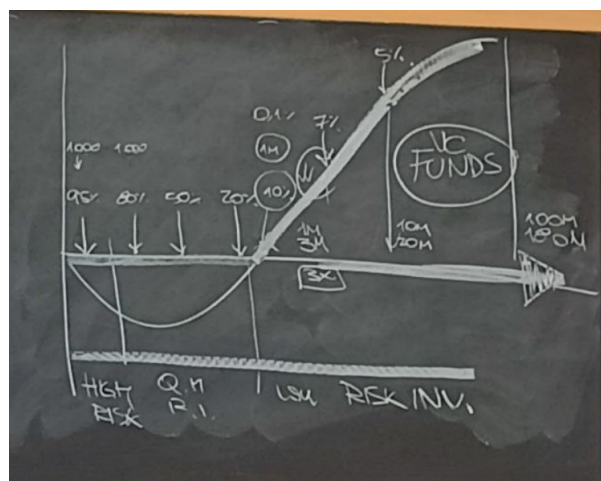 5%
0,1%
7%
1M
1000 1000
VC
FUNDS
95% 80% 50% 20% 10%
1M
3M
10M
20M
100M
180M
3X
HIGH
RISK
RISK INV.